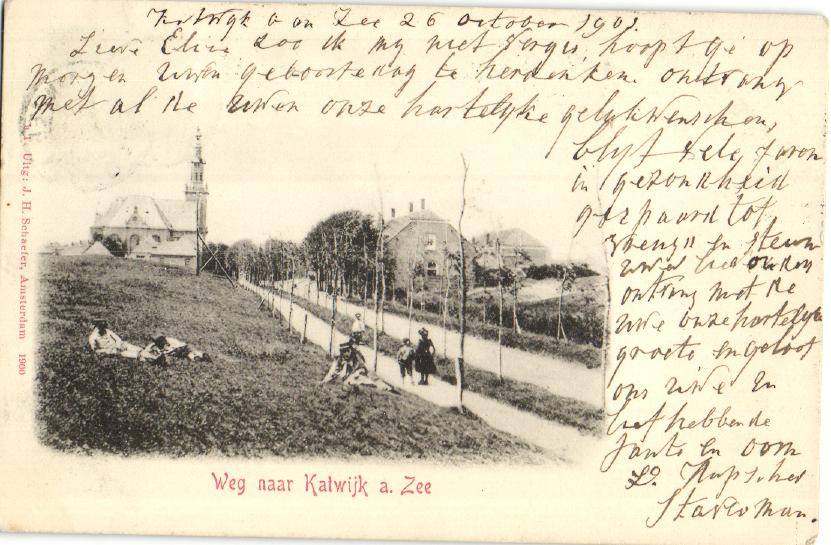 Katwijk aan Zee 26 october 1901.
Lieve Eliza zoo ik my niet vergis, hoopt ge op
morgen uwen geboortedag te herdenken. ontvang
met al de uwen onze hartelyke gelukwenschen,
blyf vele jaren
in gezondheid
gespaard tot
vreugd en steun
uwer
ontvang met de
uwe onze hartelyke
groete en geloof
ons uwe U
liefhebbende
Tante en oom
D.
Uitg: J. H. Schaefer, Amsterdam 1900
Weg naar Katwijk a. Zee